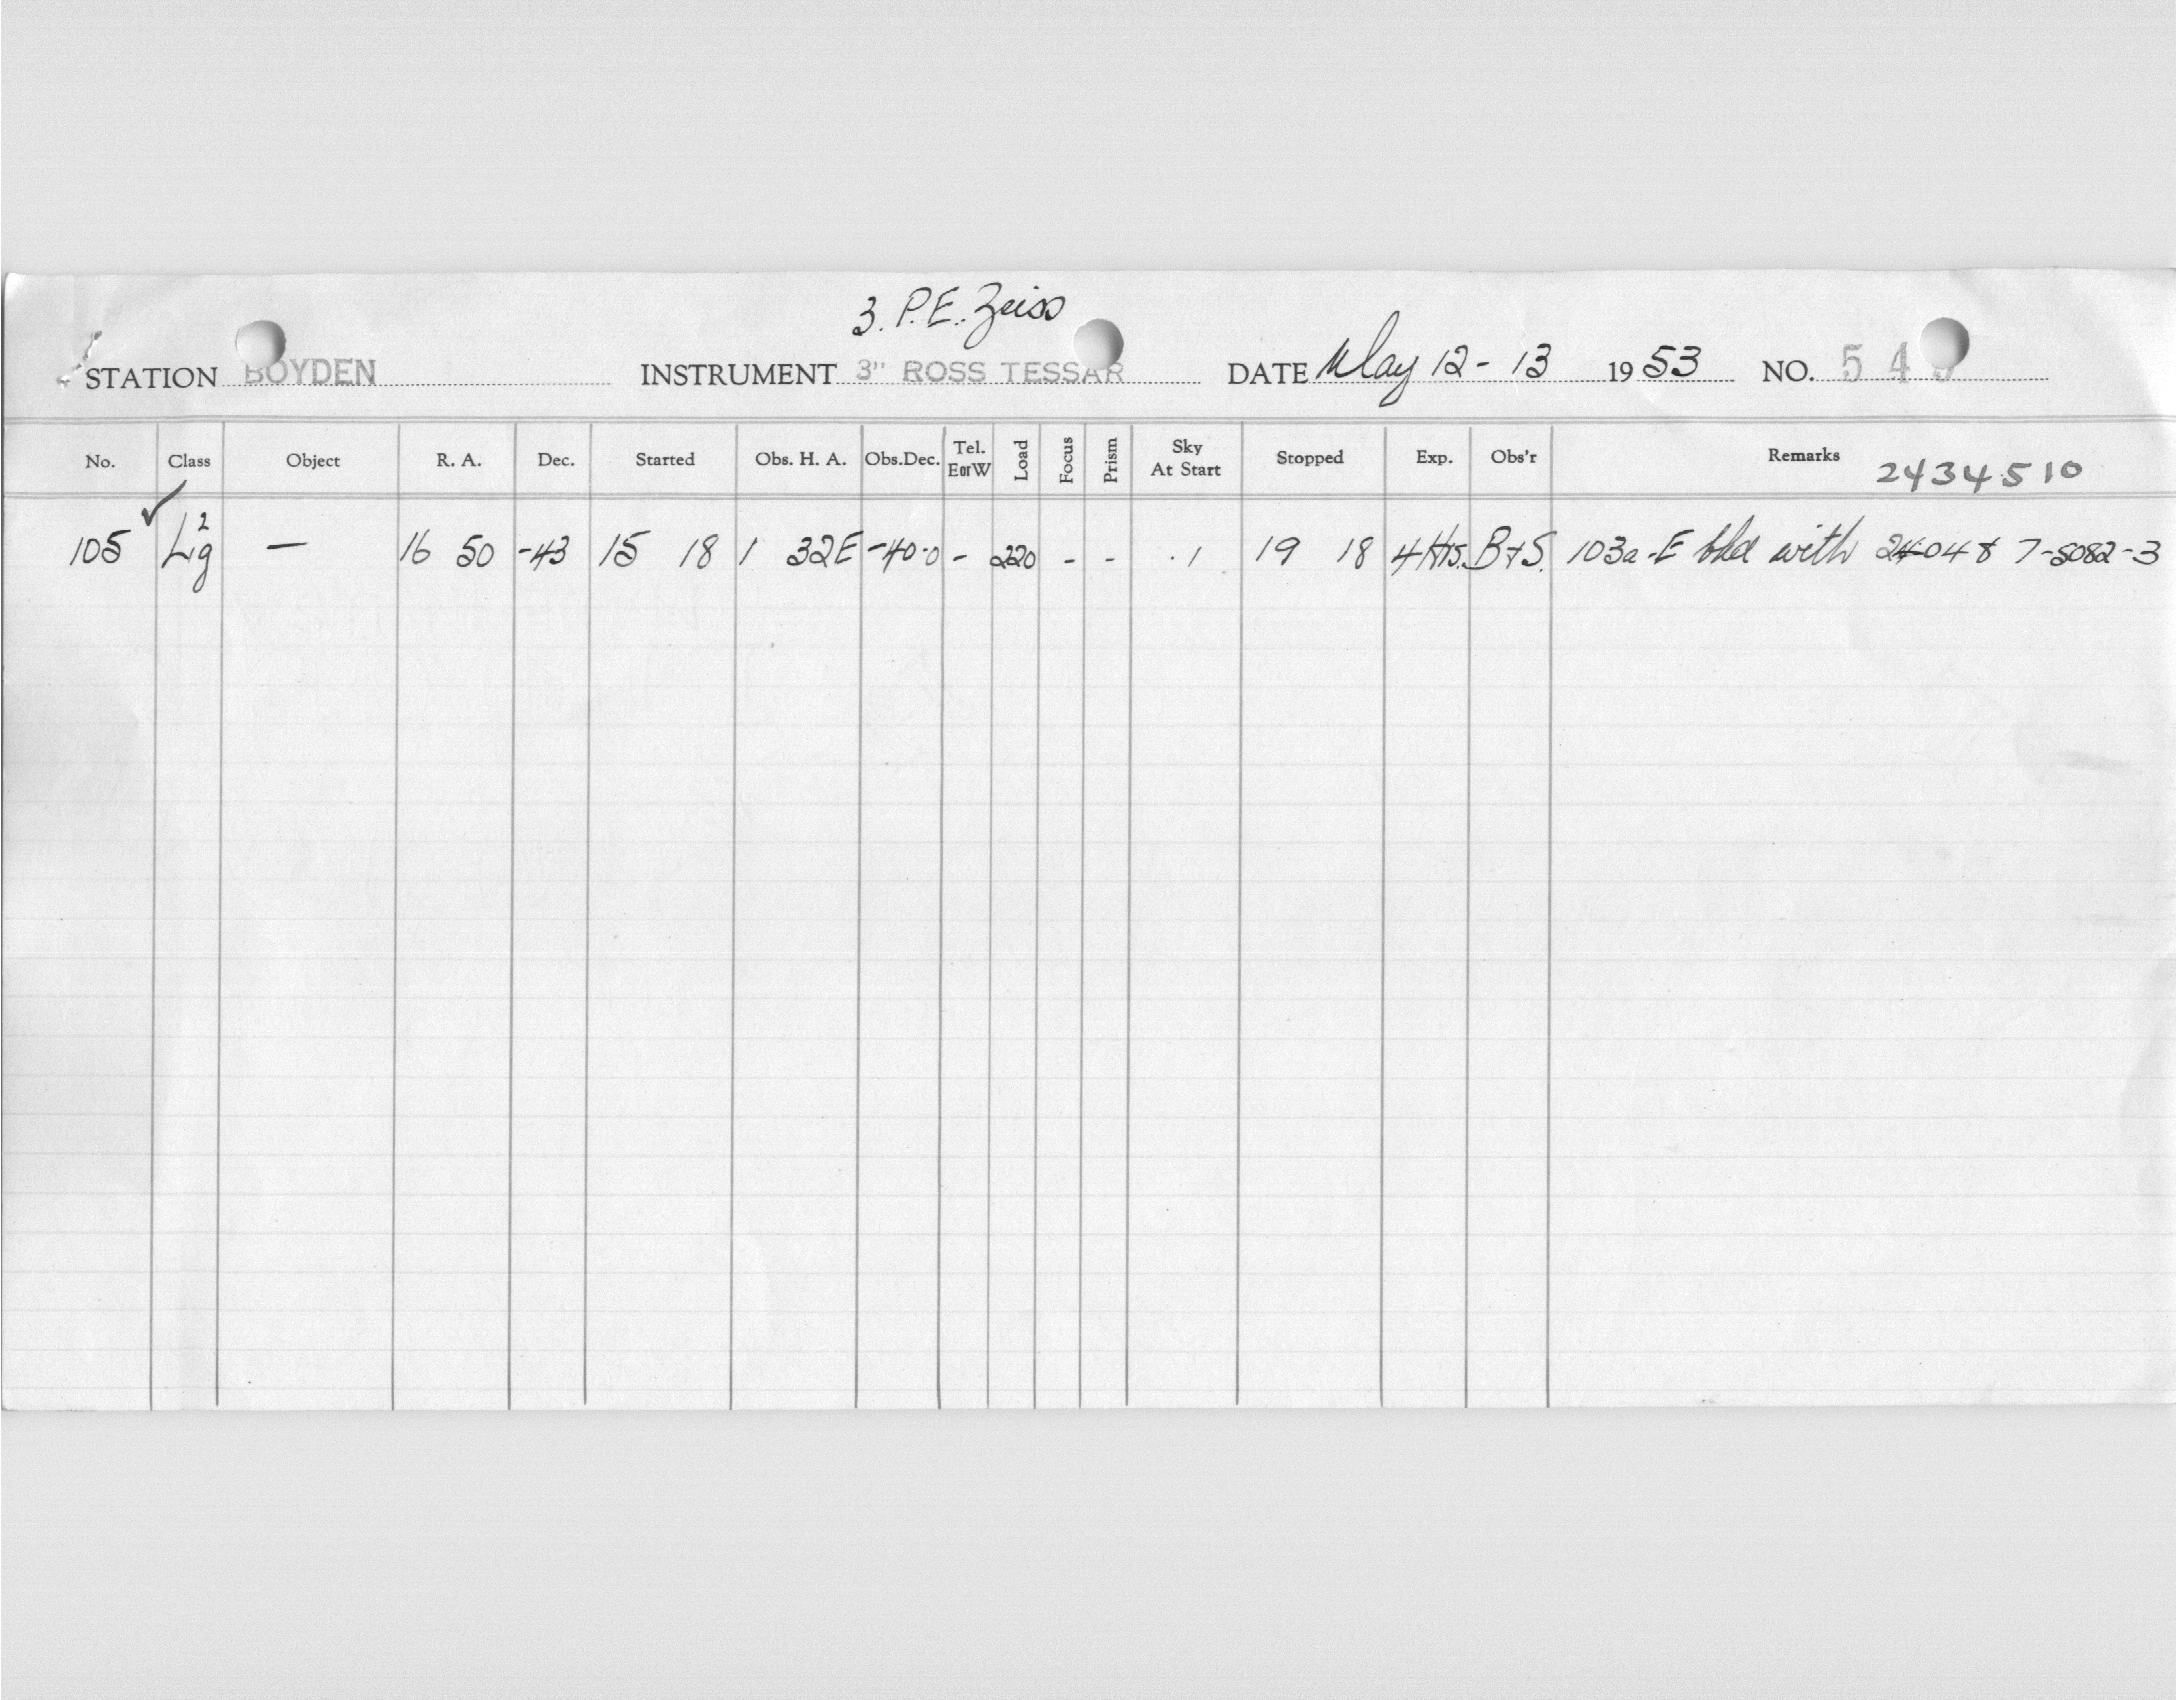 3. P.E. Zeiss
STATION BOYDEN INSTRUMENT 3" ROSS TESSAR DATE May 12 - 13 1953 NO. 54
No. Class Object R. A. Dec. Started Obs. H. A. Obs.Dec. Tel. E or W Load Focus Prism Sky At Start Stopped Exp. Obs'r Remarks 2434510
105 ✓ Lg² — 16 50 -43 15 18 1 32E -40.0 - 220 - - .1 19 18 4 Hrs. B+S. 103a-E with 7-5082-3